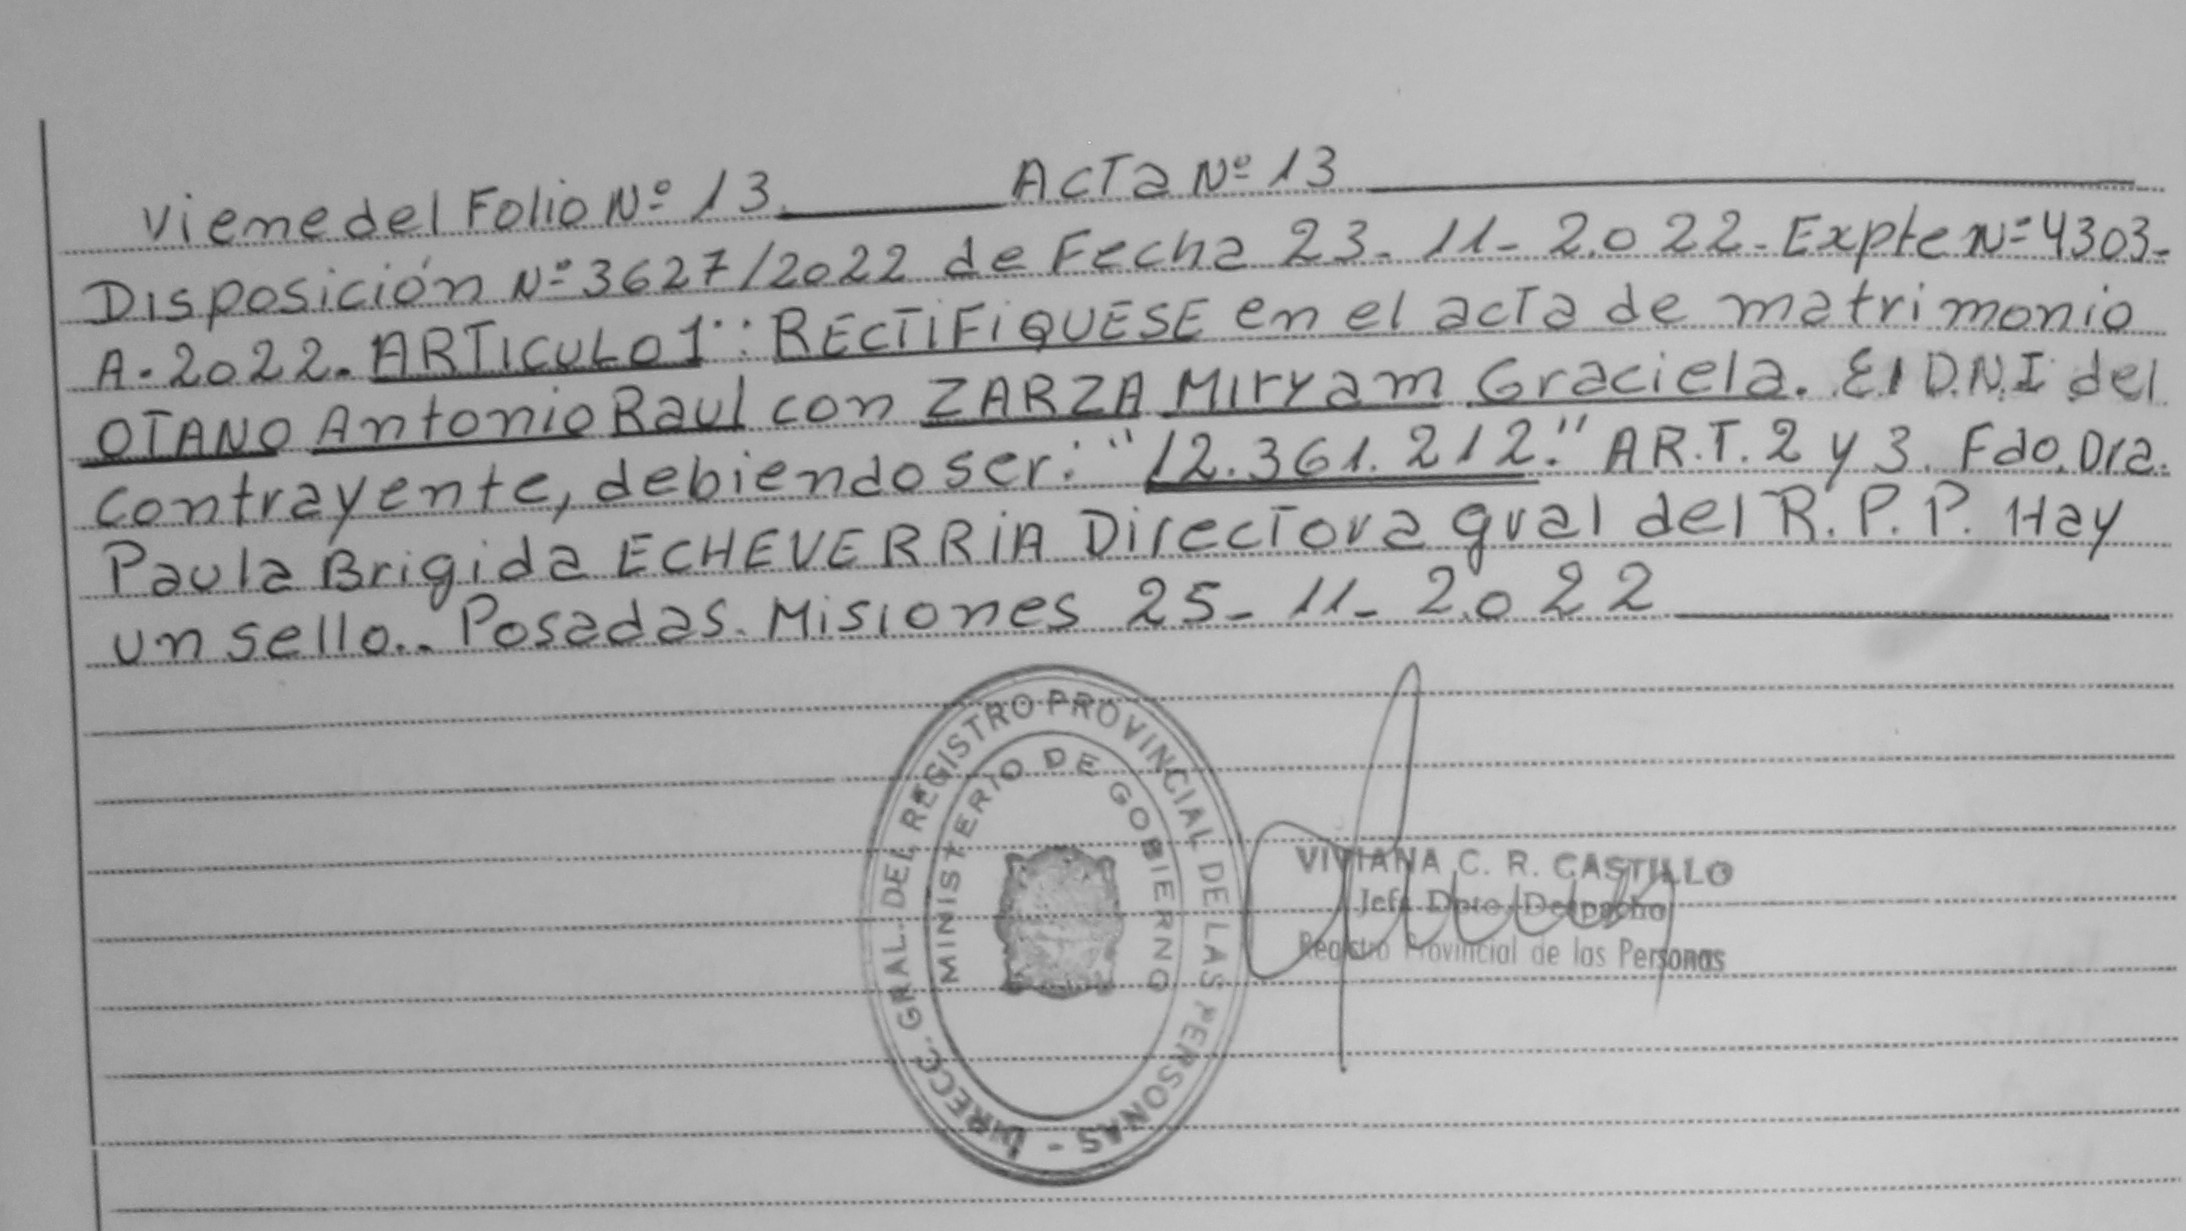 Viene del Folio Nº 13. ACTA Nº 13
Disposición Nº 3627/2022 de Fecha 23-11-2.022- Expte Nº 4303-
A-2022. ARTICULO 1º: RECTIFIQUESE en el acta de matrimonio
OTANO Antonio Raul con ZARZA Miryam Graciela. El D.N.I del
contrayente, debiendo ser: "12.361.212." AR.T. 2 y 3. Fdo. Dra.
Paula Brigida ECHEVERRIA Directora gral del R.P.P. Hay
un sello.. Posadas. Misiones 25-11-2.022
DIRECC. GRAL. DEL REGISTRO PROVINCIAL DE LAS PERSONAS -
MINISTERIO DE GOBIERNO
VIVIANA C. R. CASTILLO
Jefa Dpto. Despacho
Registro Provincial de las Personas